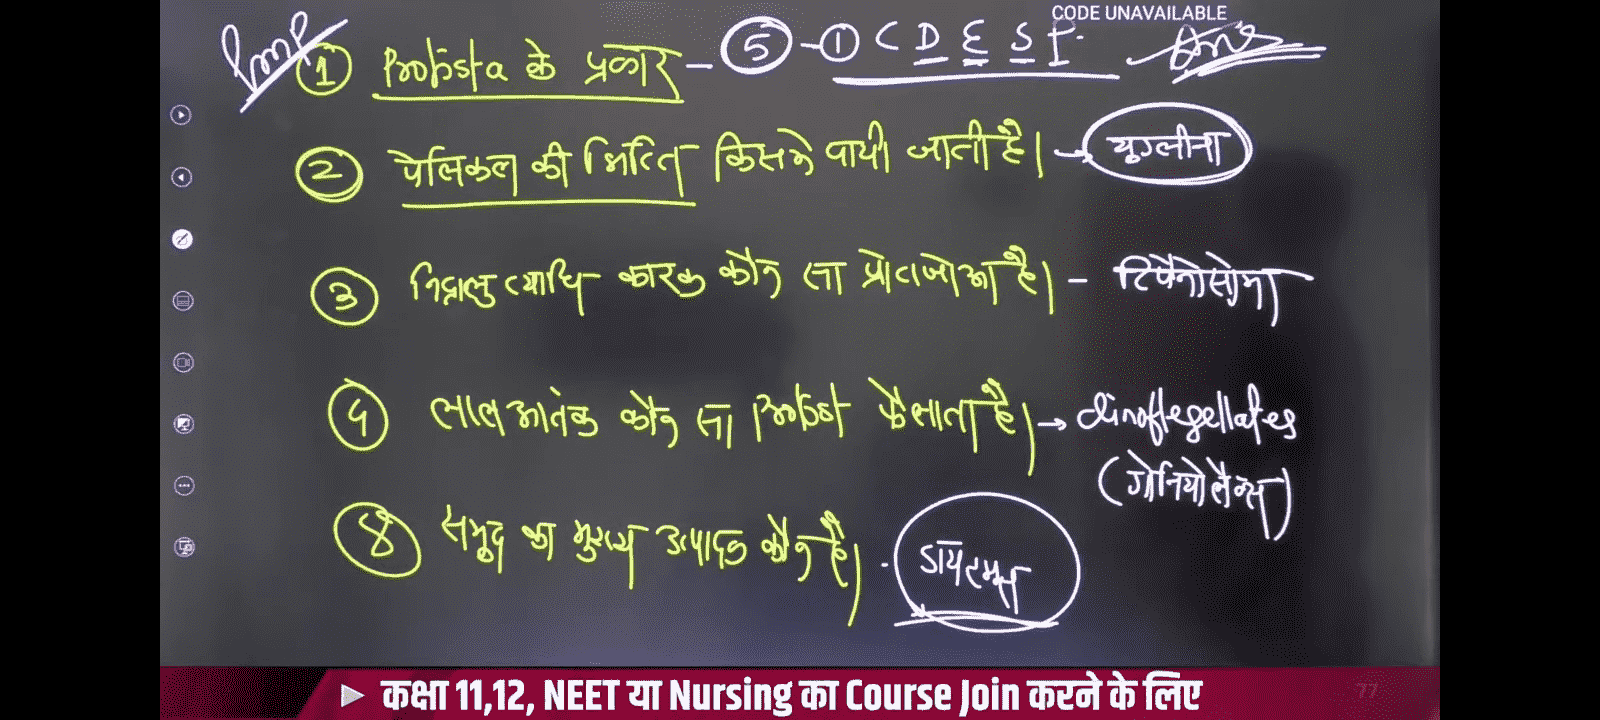 CODE UNAVAILABLE
Imp
1 Protista के प्रकार - 5 - 1 C D E S P. Ans
2 पेलिकल की भित्ति किसमे पायी जाती है। → युग्लीना
3 निद्रालु व्याधि कारक कौन सा प्रोटोजोआ है। - टिपैनोसोमा
4 लाल आतंक कौन सा Protist फैलाता है। → dinoflegellates
(गोनियोलैक्स)
8 समुद्र का मुख्य उत्पादक कौन है। . डायटम्स
कक्षा 11,12, NEET या Nursing का Course Join करने के लिए
77